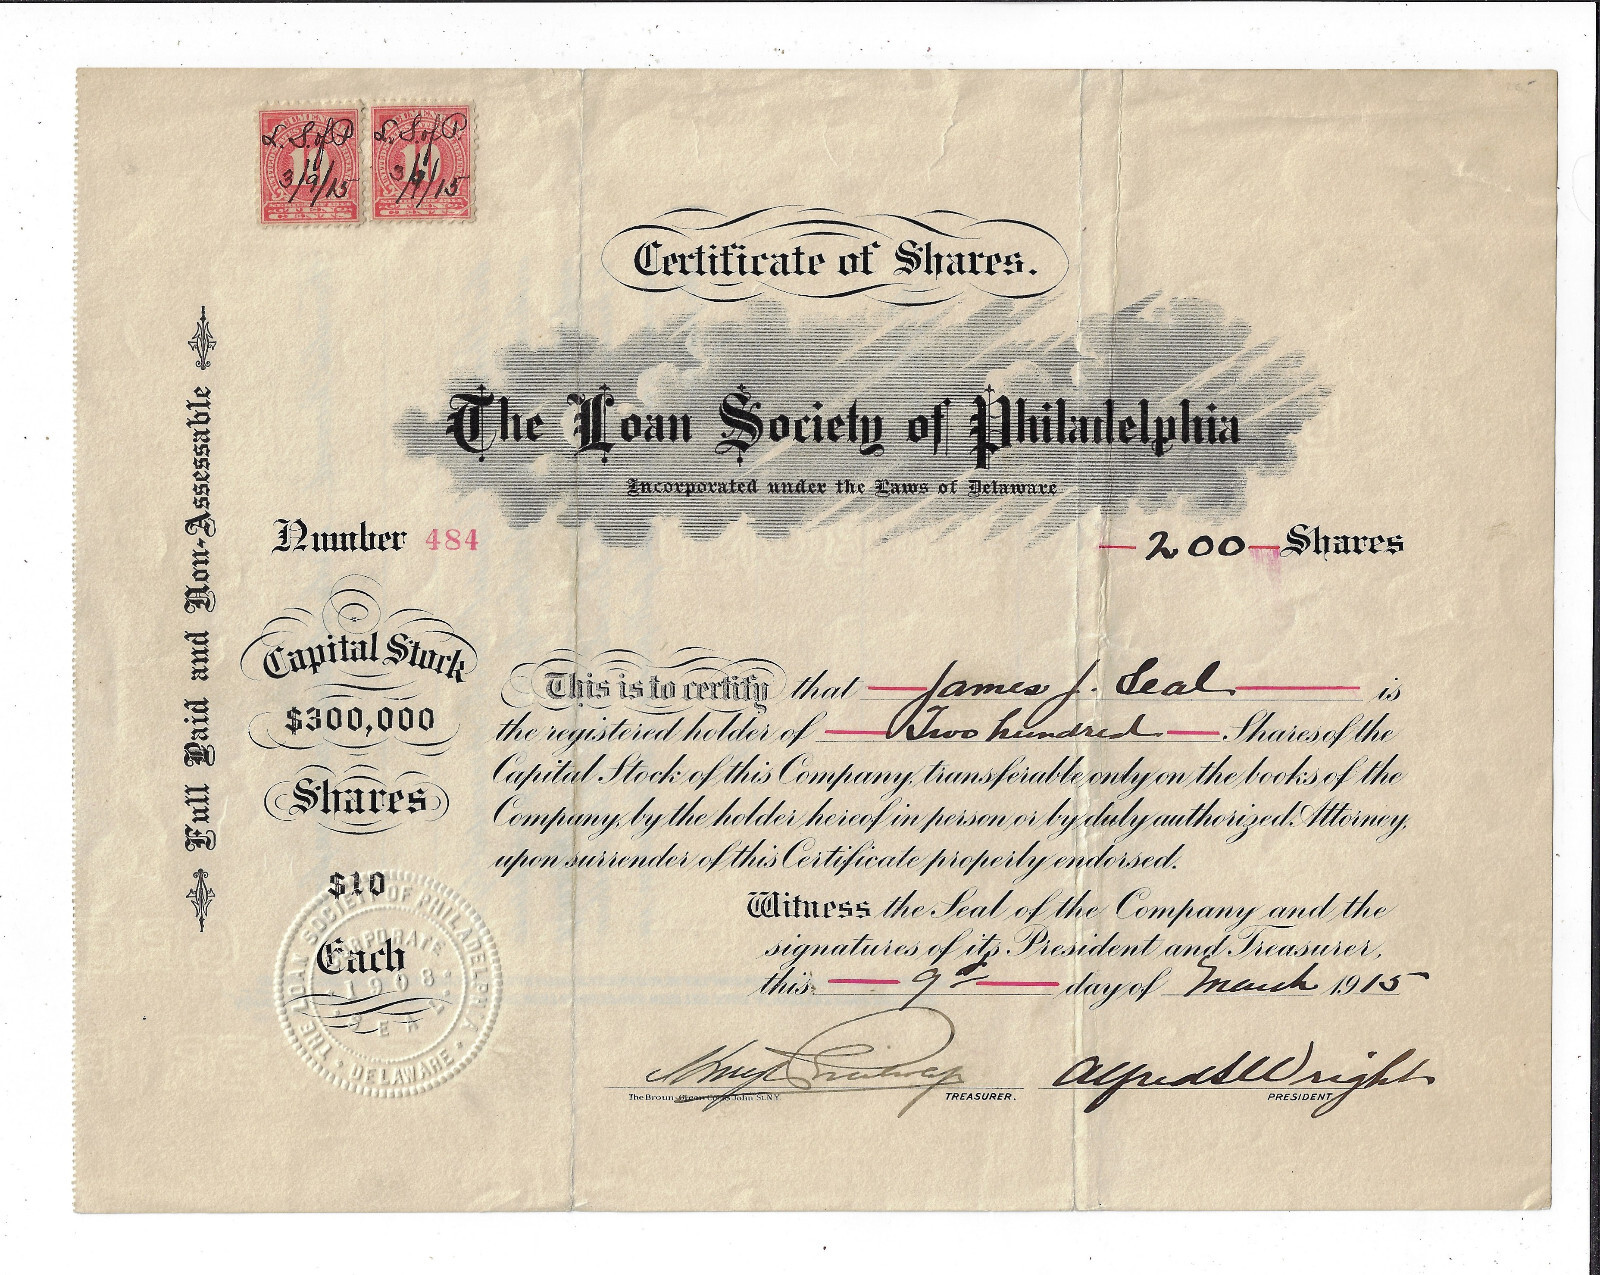 L. S. of P. L. S. of P.
10 10
3/9/15 3/9/15
Certificate of Shares.
The Loan Society of Philadelphia
Incorporated under the Laws of Delaware
Number 484
200 Shares
Full Paid and Non-Assessable
Capital Stock
$300,000
Shares
$10
Each
This is to certify that James J. Seal is
the registered holder of Two hundred Shares of the
Capital Stock of this Company, transferable only on the books of the
Company, by the holder hereof in person or by duly authorized Attorney,
upon surrender of this Certificate properly endorsed.
Witness the Seal of the Company and the
signatures of its President and Treasurer,
this 9th day of March 1915
THE LOAN SOCIETY OF PHILADELPHIA
CORPORATE
1908
SEAL
DELAWARE
Alfred S Wright
The Broun-Green Co. John St. N.Y. TREASURER. PRESIDENT